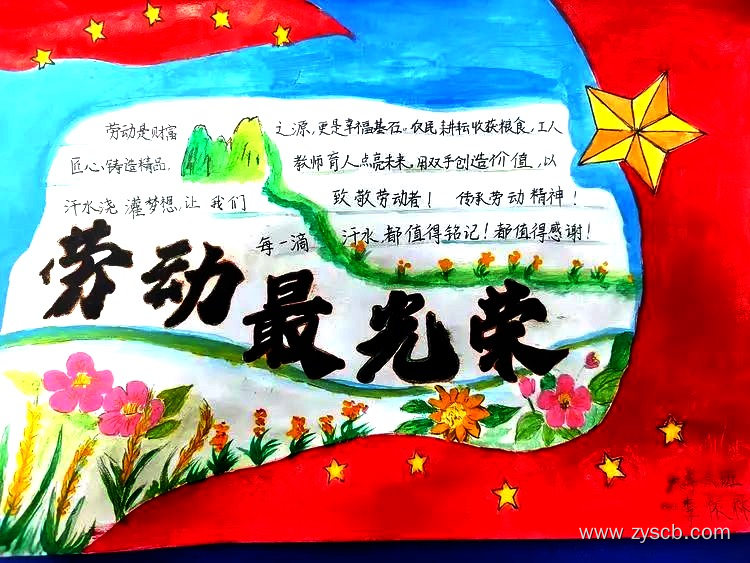 劳动是财富之源,更是幸福基石。农民耕耘收获粮食,工人
匠心铸造精品,教师育人点亮未来,用双手创造价值,以
汗水浇灌梦想,让我们致敬劳动者!传承劳动精神!
每一滴汗水,都值得铭记!都值得感谢!
劳动最光荣
www.zyscb.com